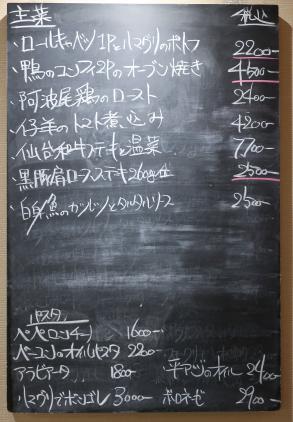 主菜 税込
・ロールキャベツ1Pとハマグリのポトフ 2200-
・鴨のコンフィ2Pのオーブン焼き 4500-
、阿波尾鶏のロースト 2400-
、仔羊のトマト煮込み 4200
、仙台和牛ステーキと温菜 7700-
、黒豚肩ロースステーキ260g 2500-
、白身魚の タルタルソース 2500-
パスタ
ペペロンチーノ 1600-
ベーコンのオイルパスタ 2200-
アラビアータ 1800- 平アジのオイル 2400
ハマグリでボンゴレ 3000- ボロネーゼ 2900-